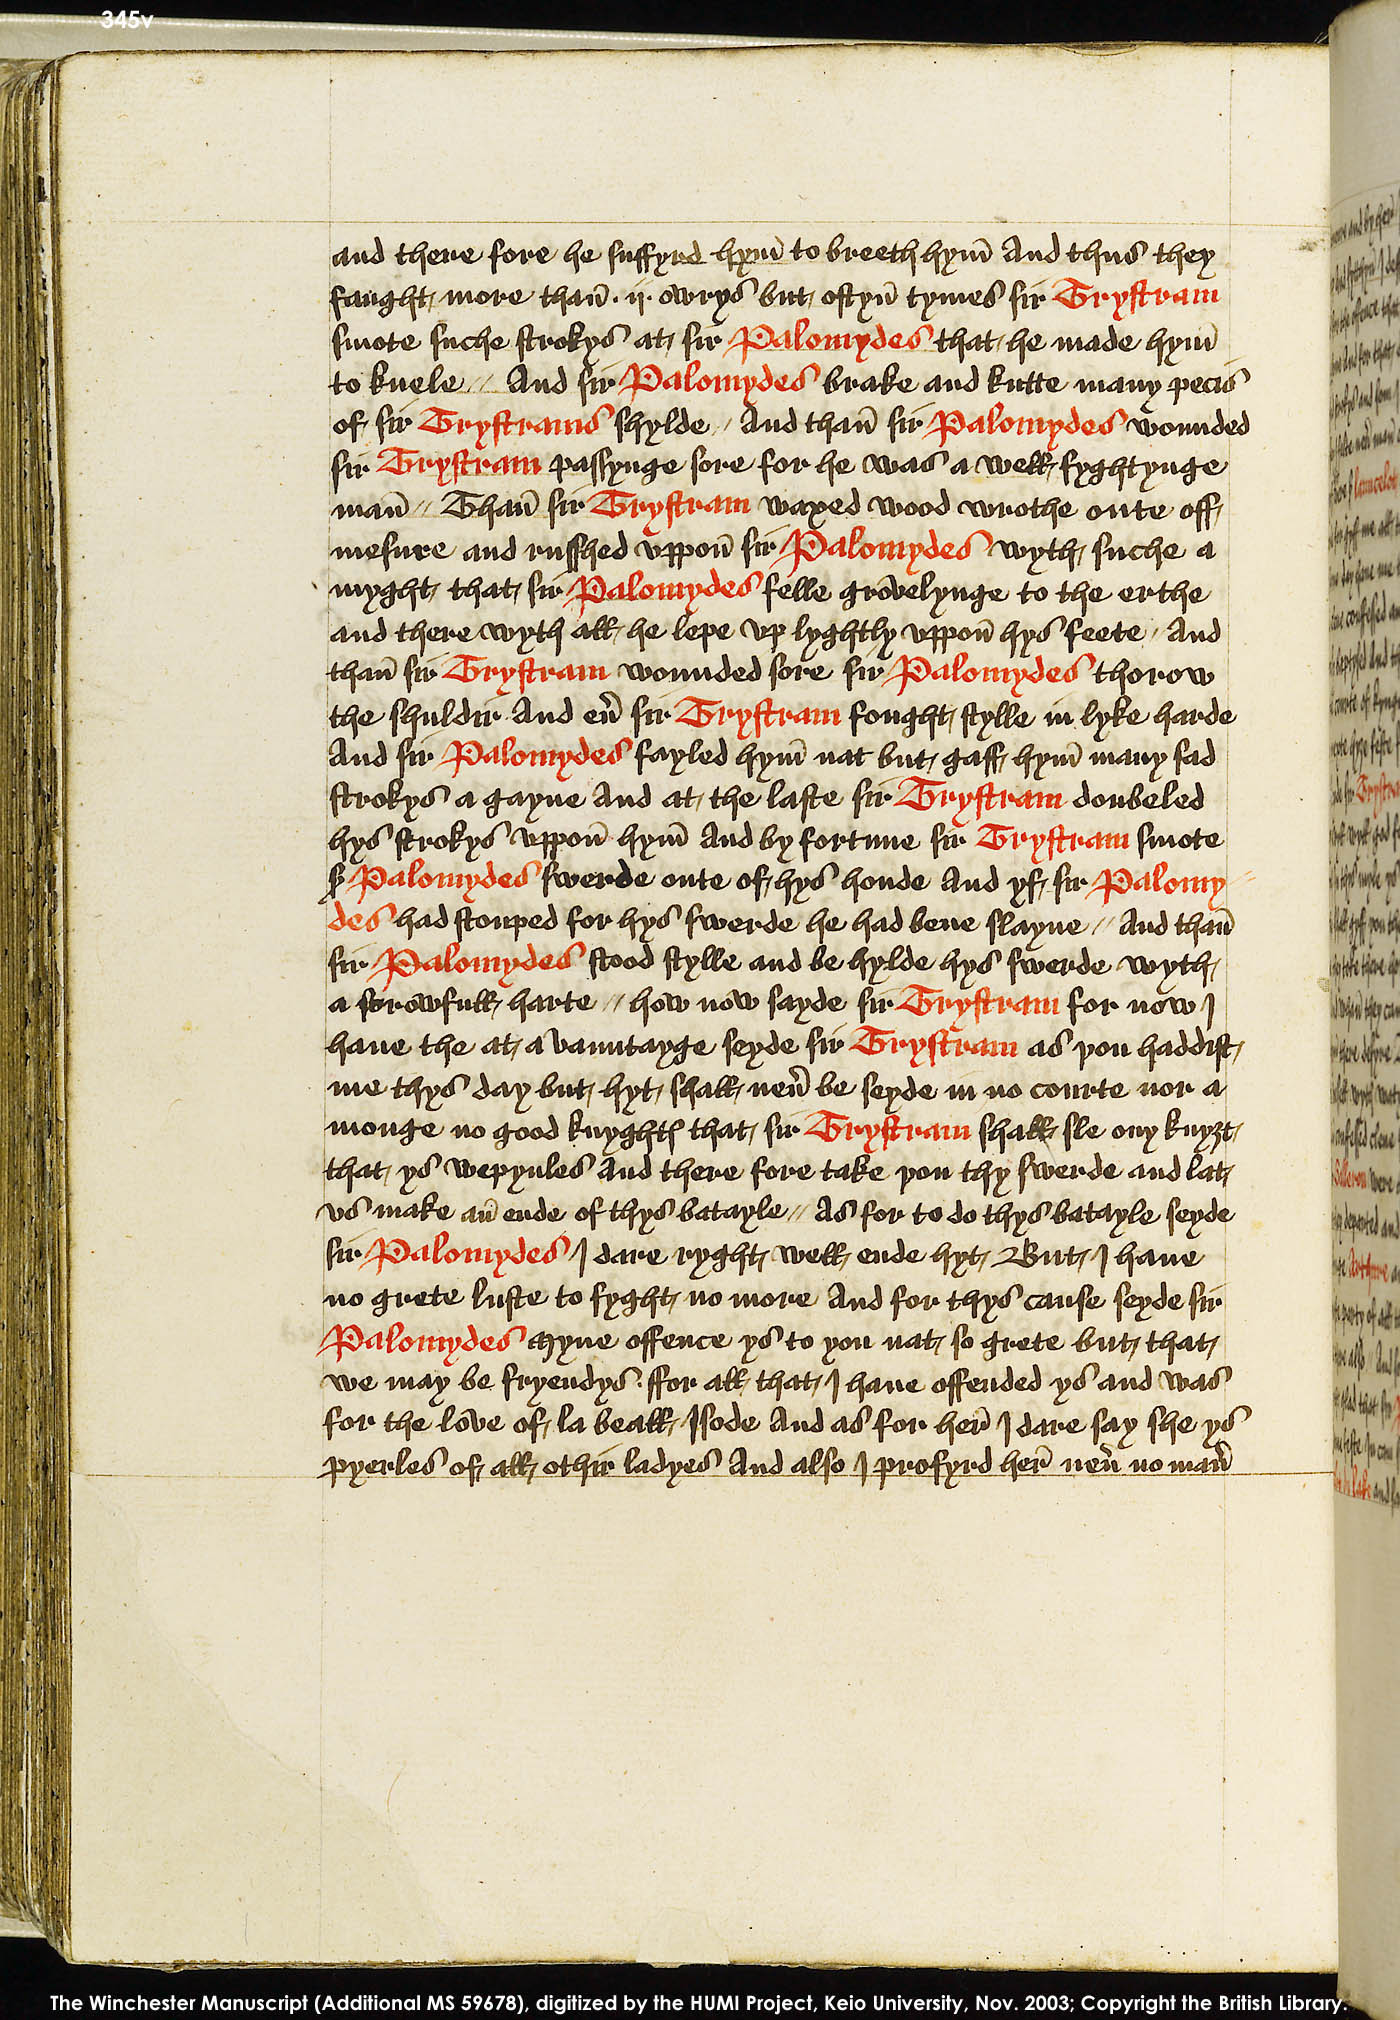 345v
and there fore he suffyrd hym̄ to breeth hym̄ And thus they
faught more than̄ · ij · owrys but oftyn̄ tymes sir Trystram
smote suche strokys at sir Palomydes that he made hym̄
to knele // And sir Palomydes brake and kutte many pecis
of sir Trystrams shylde // And than̄ sir Palomydes wounded
sir Trystram passynge sore for he was a well fyghtynge
man̄ // Than̄ sir Trystram waxed wood wrothe oute off
mesure and russhed vppon̄ sir Palomydes wyth suche a
myght that sir Palomydes felle grovelynge to the erthe
and there wyth all he lepe vp lyghtly vppon̄ hys feete // And
than̄ sir Trystram wounded sore sir Palomydes thorow
the shuldir And eū sir Trystram fought stylle in lyke harde
And sir Palomydes fayled hym̄ nat but gaff hym̄ many sad
strokys a gayne And at the laste sir Trystram doubeled
hys strokys vppon̄ hym̄ And by fortune sir Trystram smote
ß Palomydes swerde oute of hys honde And yf sir Palomy //
des had stouped for hys swerde he had bene slayne // And than̄
sir Palomydes stood stylle and be hylde hys swerde wyth
a sorowfull harte // how now sayde sir Trystram for now I
haue the at a vauntayge seyde sir Trystram as you haddist
me thys day but hyt shall neū be seyde in no courte nor a
monge no good knyghtꝭ that sir Trystram shall sle ony knyȝt
that ys wepynles And there fore take you thy swerde and lat
vs make an̄ ende of thys batayle // As for to do thys batayle seyde
sir Palomydes I dare ryght well ende hyt But I haue
no grete luste to fyght no more And for thys cause seyde sir
Palomydes Myne offence ys to you nat so grete but that
we may be fryendys · ffor all that I haue offended ys and was
for the love of la beall Isode And as for her̄ I dare say she ys
pyerles of all othir ladyes And also I profyrd her̄ neū no man̄
The Winchester Manuscript (Additional MS 59678), digitized by the HUMI Project, Keio University, Nov. 2003; Copyright the British Library.